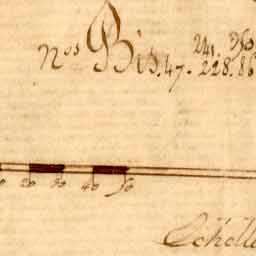 241. 250
nos Bis. 47. 228. 86
20 30 40 50
Echelle